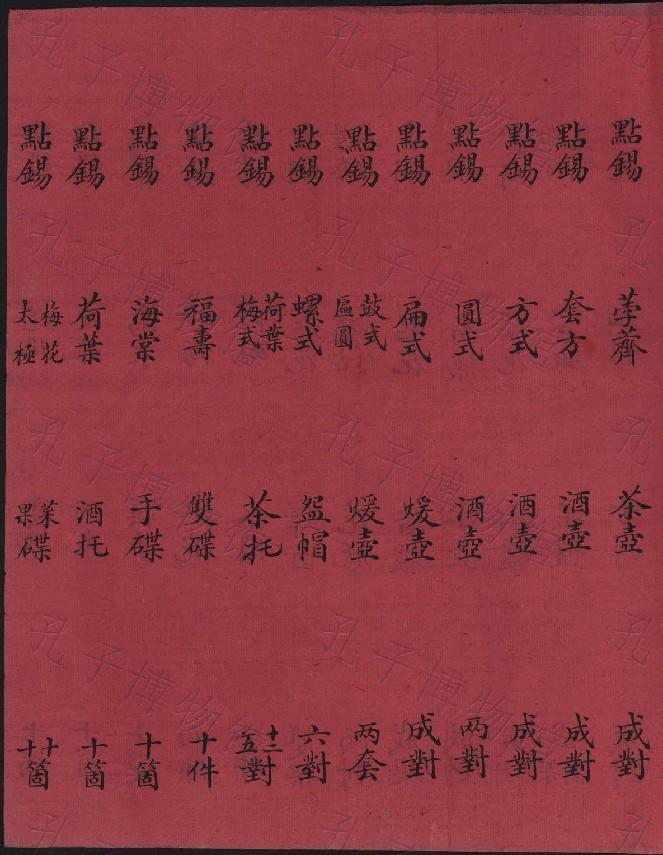 點錫荸薺茶壺成對
點錫套方酒壺成對
點錫方式酒壺成對
點錫圓式酒壺两對
點錫扁式煖壺成對
點錫鼓式區圓煖壺两套
點錫螺式盌帽六對
點錫荷葉梅式茶托十二五對
點錫福壽雙碟十件
點錫海棠手碟十箇
點錫荷葉酒托十箇
點錫梅花太極菓果碟十十箇
孔子博物館